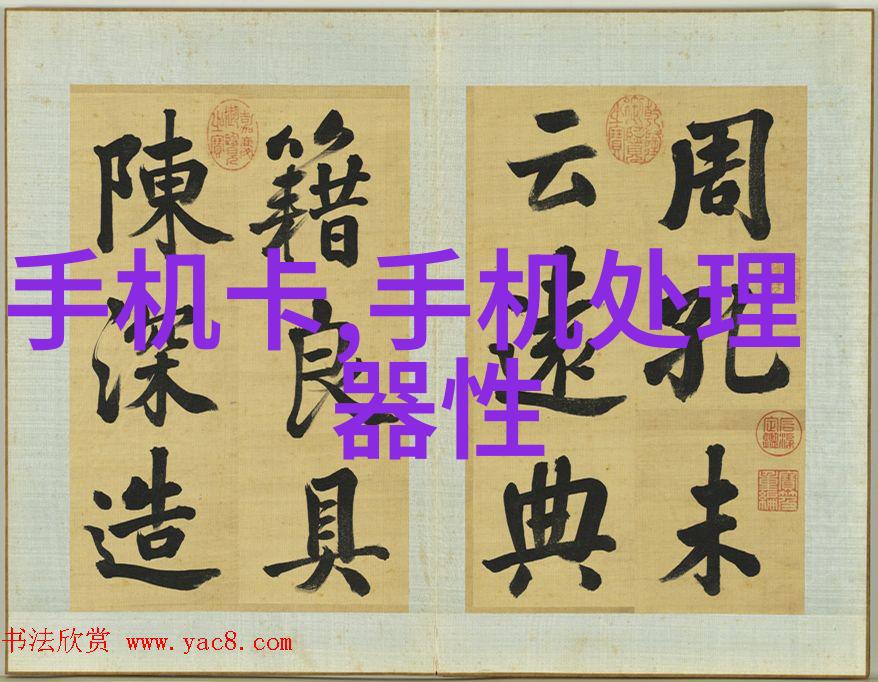 周孔未
云遠典
籍良具
陳深造
手机卡,手机处理
器性
书法欣赏 www.yac8.com